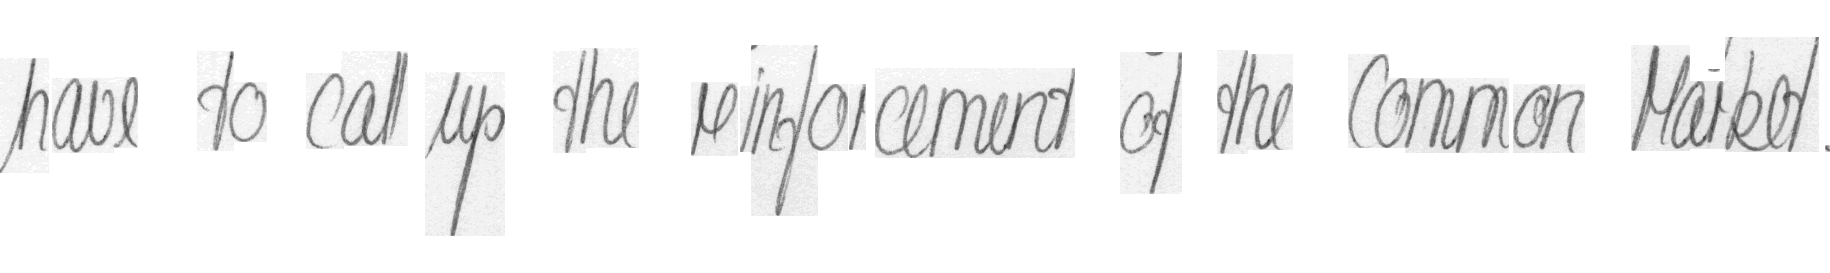 have to call up the reinforcement of the Common Market.